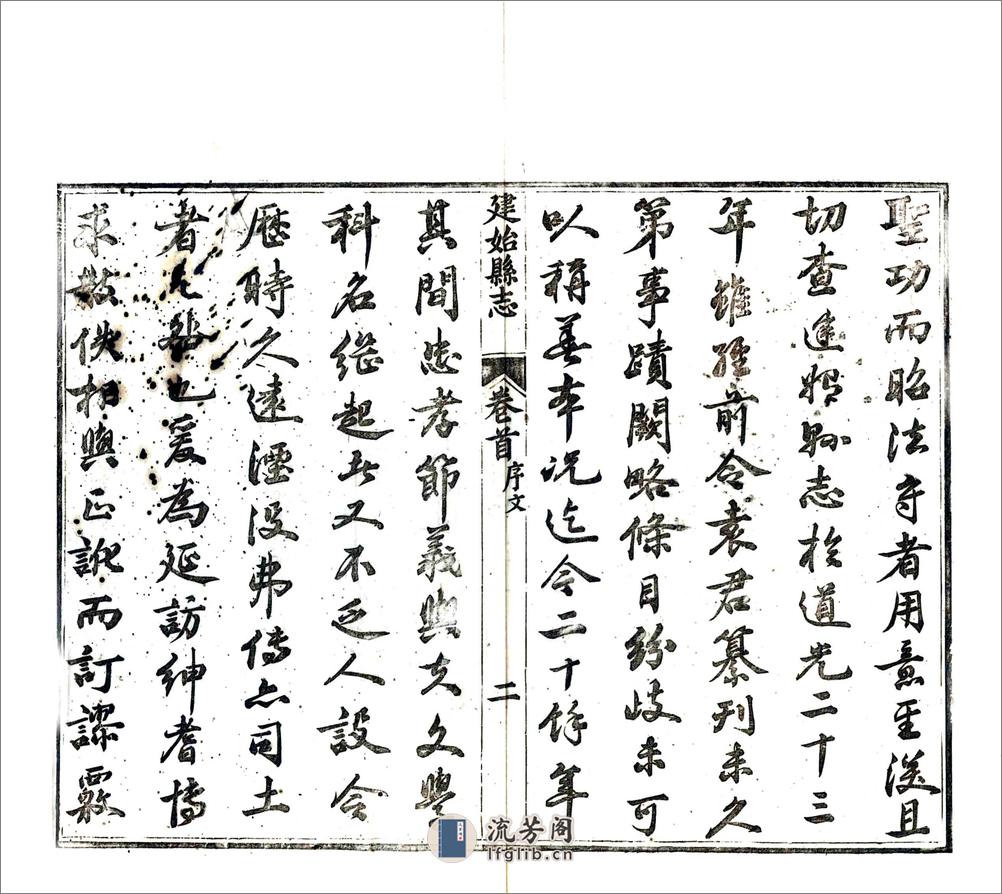 聖功而昭法守者用意至深且
切查建始縣志於道光二十三
年雖經前令袁君纂刊未久
第事蹟闕略條目紛歧未可
以稱善本況迄今二十餘年
建始縣志 卷首 序文 二
其間忠孝節義與夫文學
科名繼起者又不乏人設令
歷時久遠湮沒弗傳亦司土
者之咎也爰為延訪紳耆博
求散佚相與正訛而訂謬覈
流芳阁
lfglib.cn